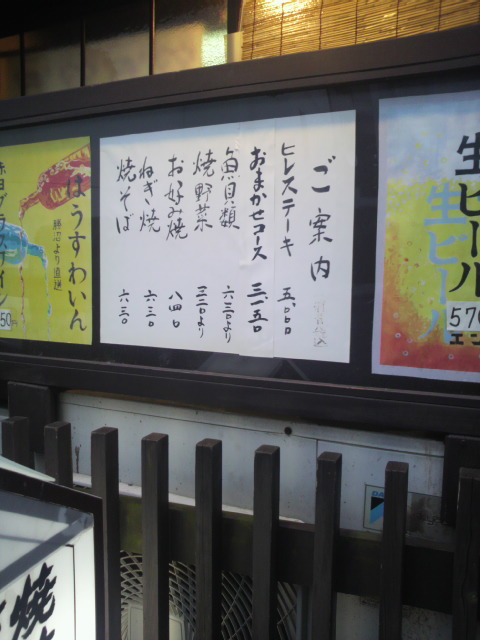 生ビール
生ビール
570
エン
ご案内
ヒレステーキ 五、〇〇〇
おまかせコース 三一五〇
魚貝類 六三〇より
焼野菜 三三〇より
お好み焼 八四〇
ねぎ焼 六三〇
焼そば 六三〇
はうすわいん
勝沼より直送
赤白グラスワイン
50円
焼